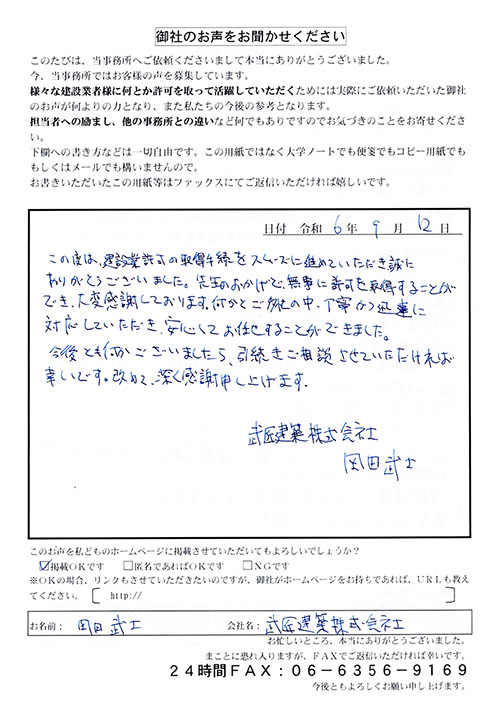 御社のお声をお聞かせください
このたびは、当事務所へご依頼くださいまして本当にありがとうございました。
今、当事務所ではお客様の声を募集しています。
様々な建設業者様に何とか許可を取って活躍していただくためには実際にご依頼いただいた御社
のお声が何よりの力となり、また私たちの今後の参考となります。
担当者への励まし、他の事務所との違いなど何でもありですのでお気づきのことをお寄せくださ
い。
下欄への書き方などは一切自由です。この用紙ではなく大学ノートでも便箋でもコピー用紙でも
もしくはメールでも構いませんので。
お書きいただいたこの用紙等はファックスにてご返信いただければ嬉しいです。
日付 令和 6 年 9 月 12 日
この度は、建設業許可の取得手続をスムーズに進めていただき誠に
ありがとうございました。先生のおかげで、無事に許可を取得することが
でき、大変感謝しております。何かとご多忙の中、丁寧かつ迅速に
対応していただき、安心してお任せすることができました。
今後とも何かございましたら、引続きご相談させていただければ
幸いです。改めて、深く感謝申し上げます。
武匠建築株式会社
岡田武士
このお声を私どものホームページに掲載させていただいてもよろしいでしょうか?
☑掲載OKです □匿名であればOKです □NGです
※OKの場合、リンクもさせていただきたいのですが、御社がホームページをお持ちであれば、URLも教え
てください。 [ http:// ]
お名前: 岡田 武士 会社名: 武匠建築株式会社
お忙しいところ、本当にありがとうございました。
まことに恐れ入りますが、FAXでご返信いただければ幸いです。
24時間FAX:06-6356-9169
今後ともよろしくお願い申し上げます。